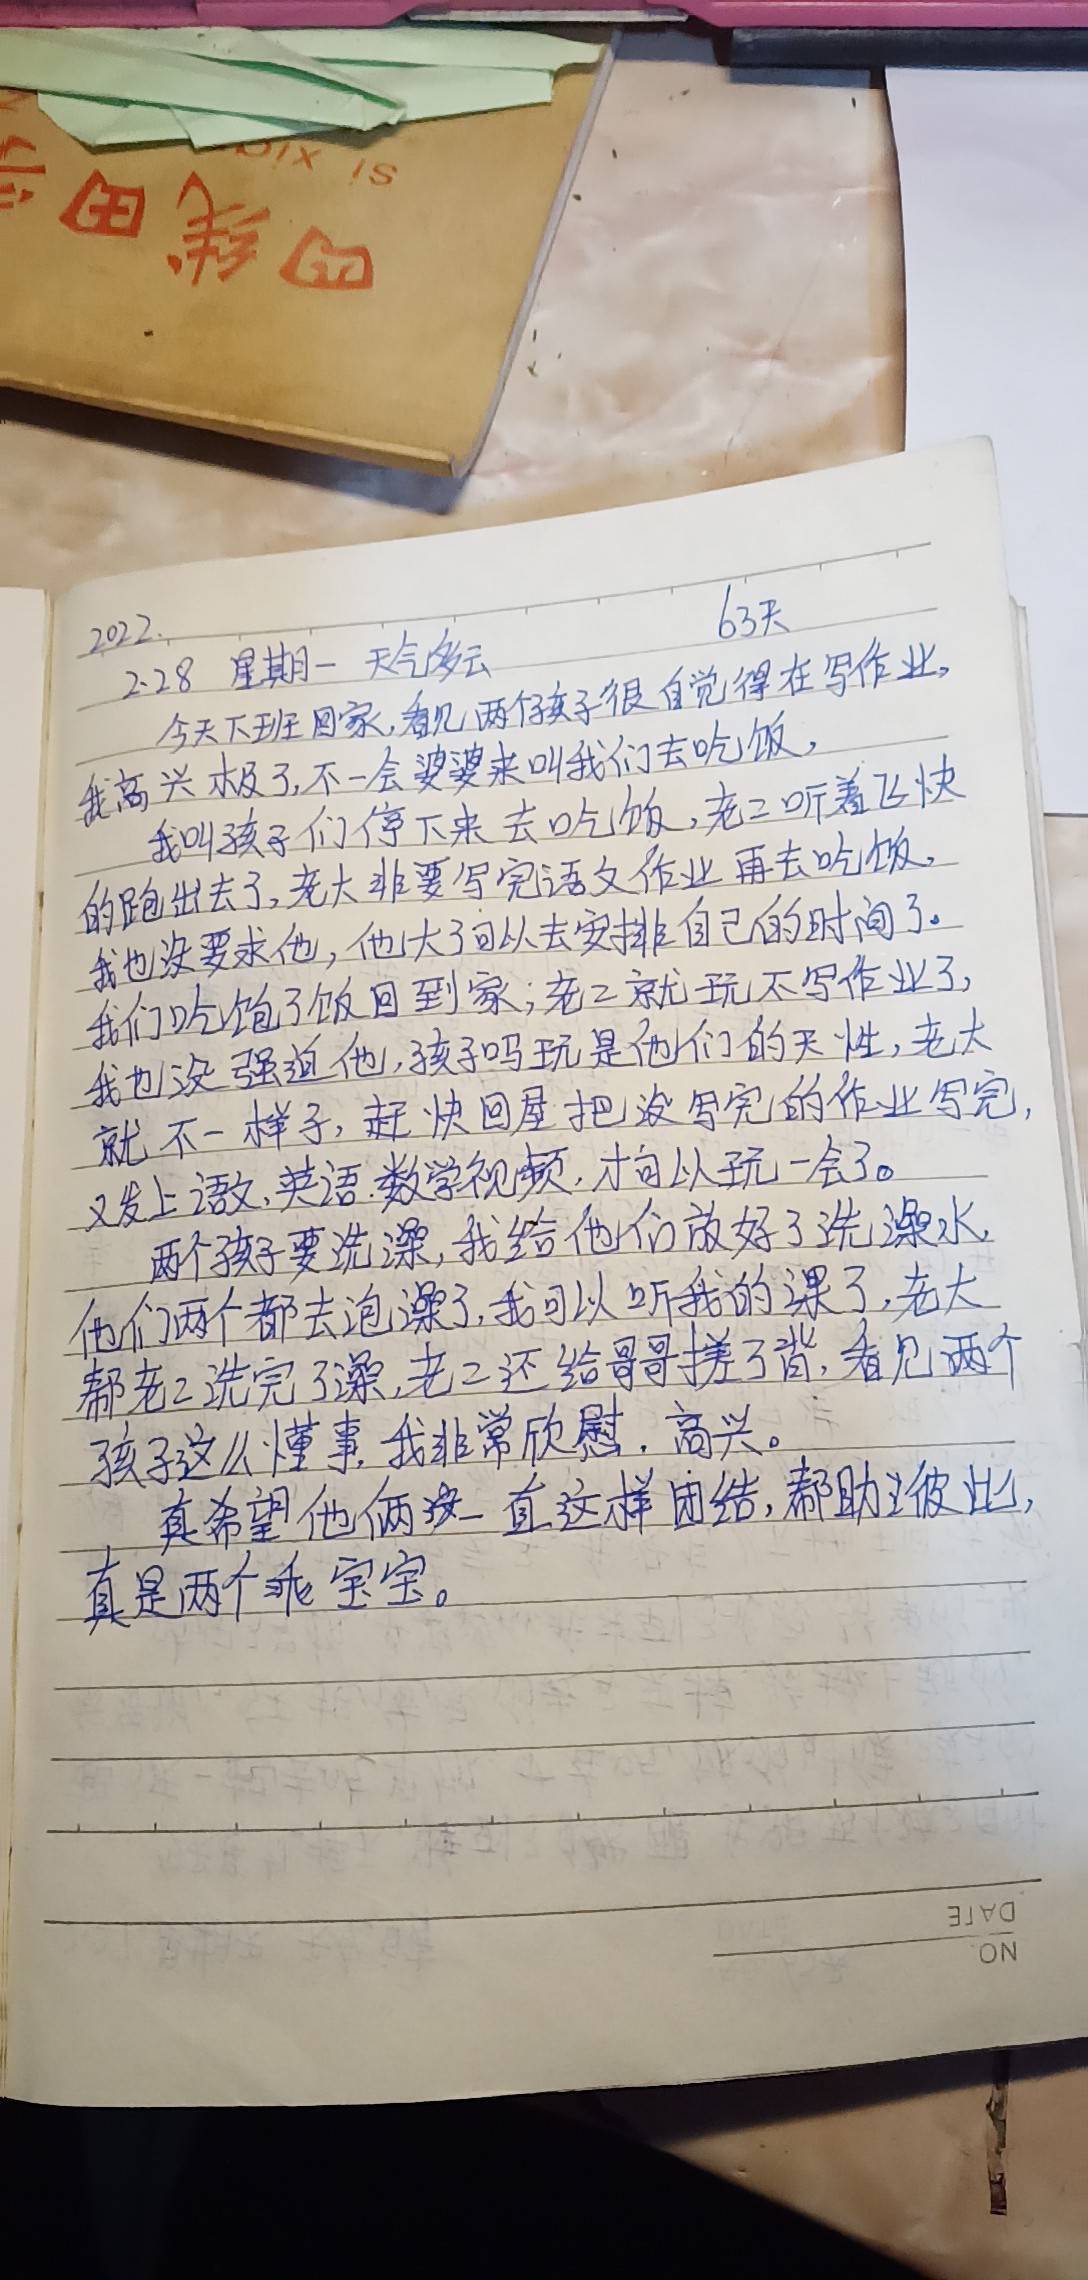 2022.
63天
2.28 星期一 天气多云
今天下班回家,看见两个孩子很自觉得在写作业,
我高兴极了,不一会婆婆来叫我们去吃饭,
我叫孩子们停下来去吃饭,老二听着飞快
的跑出去了,老大非要写完语文作业再去吃饭,
我也没要求他,他大了可以去安排自己的时间了。
我们吃饱了饭回到家;老二就玩不写作业了,
我也没强迫他,孩子吗玩是他们的天性,老大
就不一样子,赶快回屋把没写完的作业写完,
又发上语文、英语、数学视频,才可以玩一会了。
两个孩子要洗澡,我给他们放好了洗澡水,
他们两个都去泡澡了,我可以听我的课了,老大
帮老二洗完了澡,老二还给哥哥搓了背,看见两个
孩子这么懂事,我非常欣慰、高兴。
真希望他俩一直这样团结,帮助彼此,
真是两个乖宝宝。
NO.
DATE